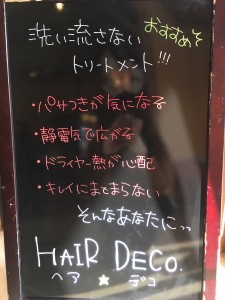 おすすめそ
洗い流さない
トリートメント!!!
・パサつきが気になる
・静電気で広がる
・ドライヤー熱が心配
・キレイにまとまらない
そんなあなたにっ
HAIR DECO.
ヘア ★ デコ